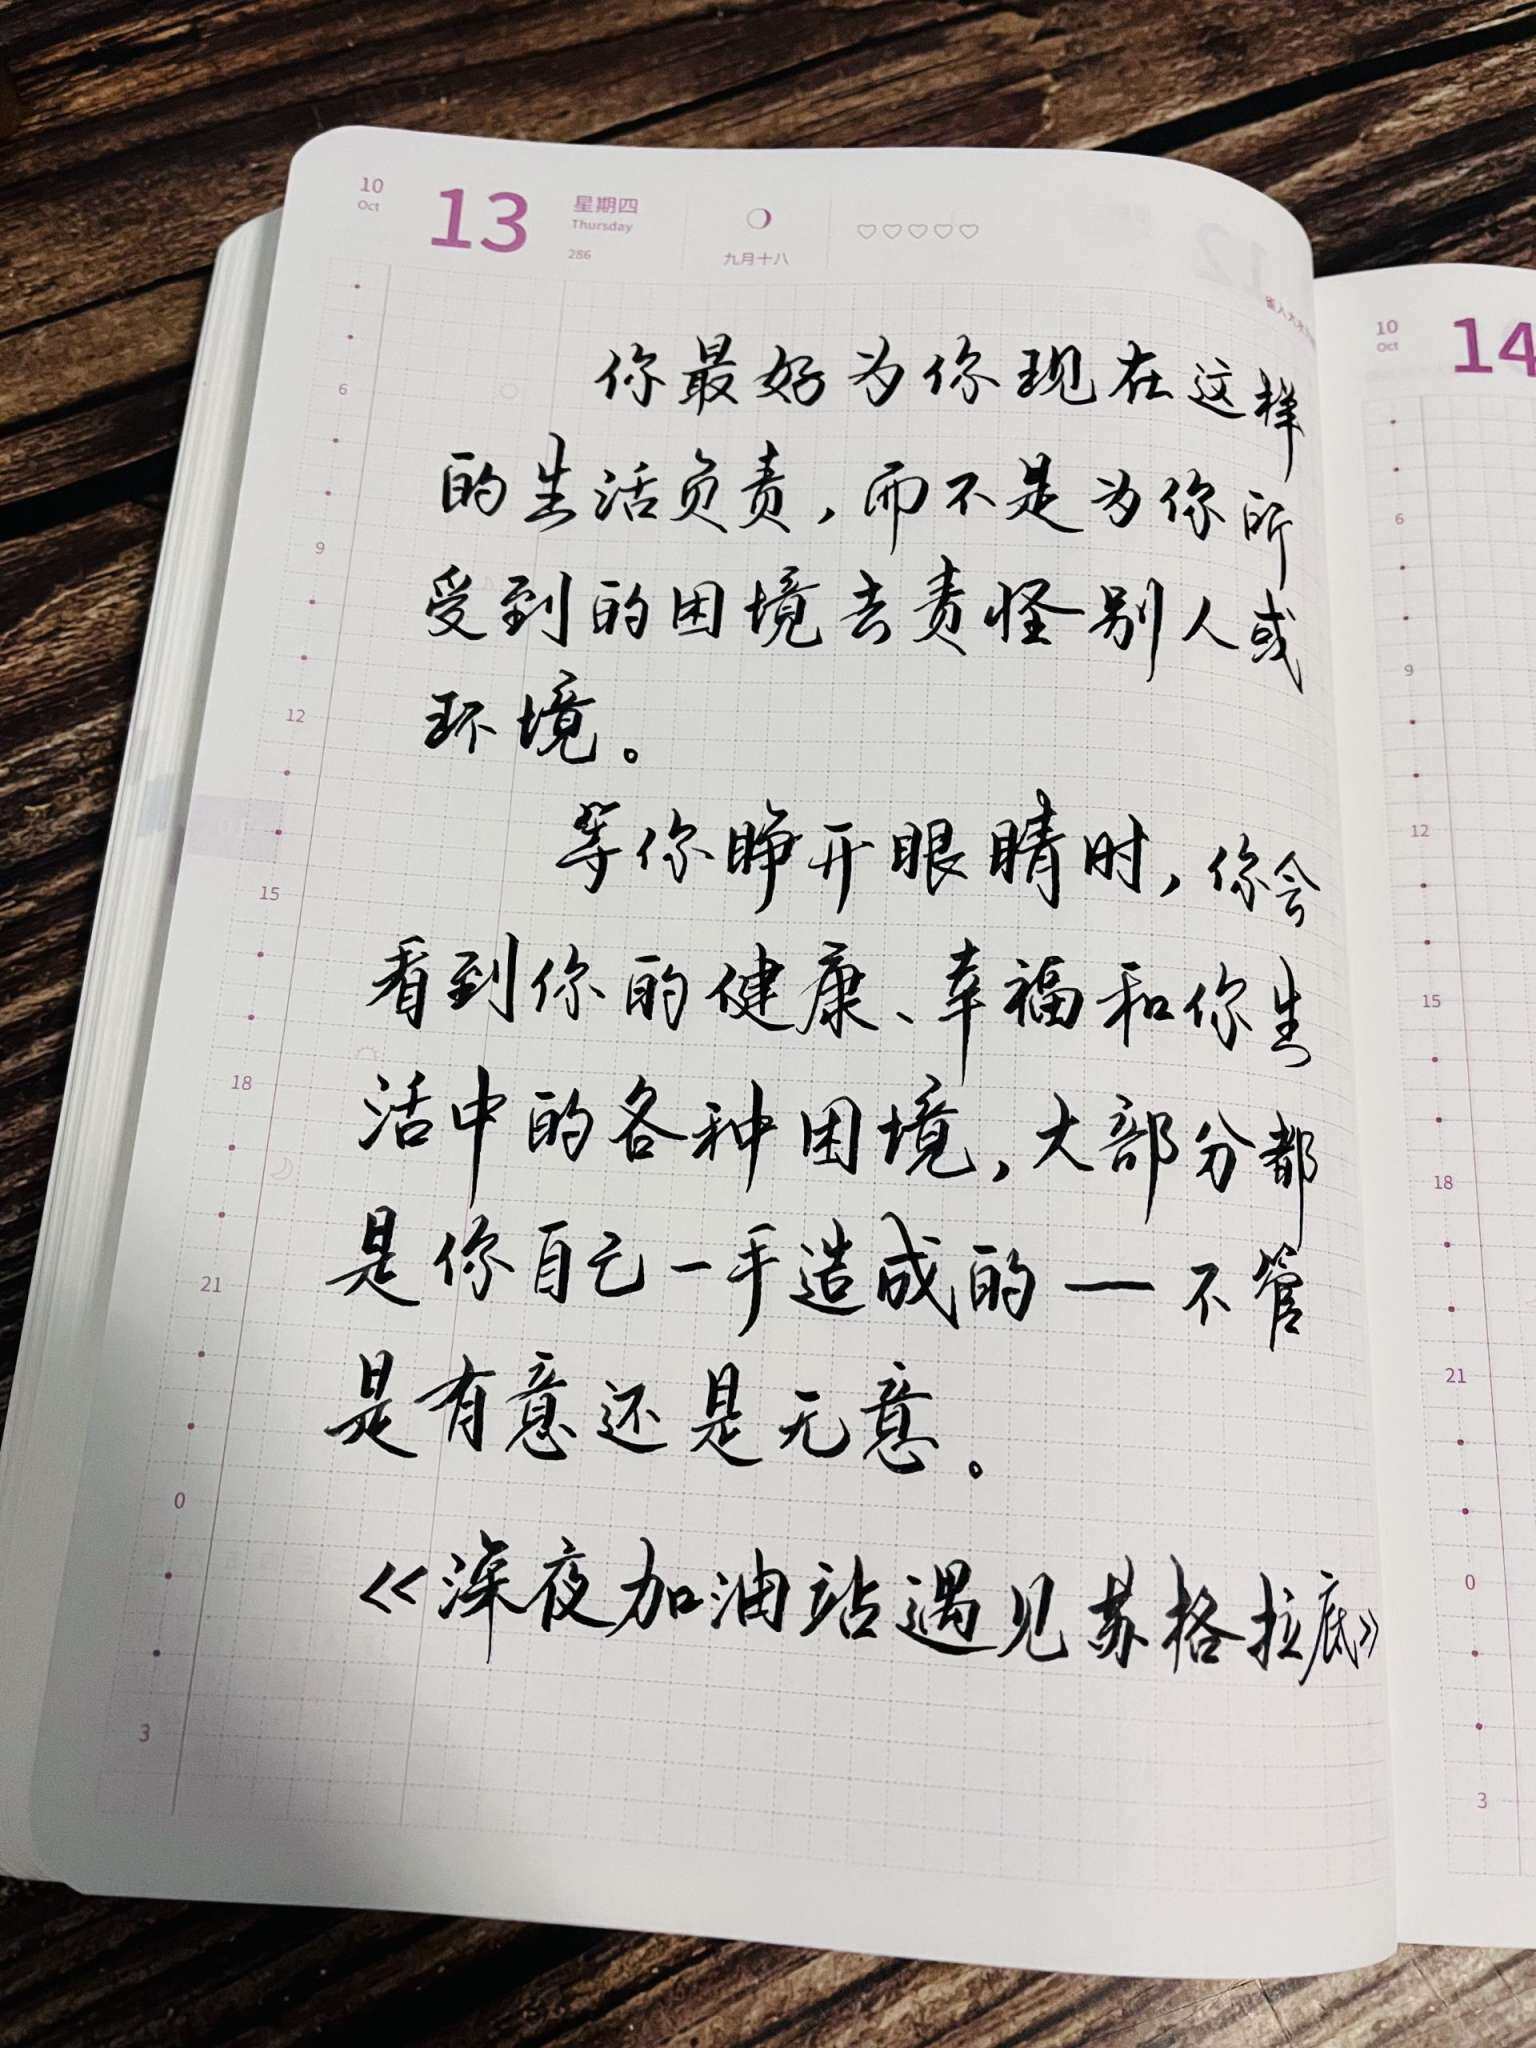 10
Oct
13
星期四
Thursday
286
九月十八
你最好为你现在这样
的生活负责，而不是为你所
受到的困境去责怪别人或
环境。
等你睁开眼睛时，你会
看到你的健康、幸福和你生
活中的各种困境，大部分都
是你自己一手造成的——不管
是有意还是无意。
《深夜加油站遇见苏格拉底》
6
9
12
15
18
21
0
3
10
Oct
14
6
9
12
15
18
21
0
3